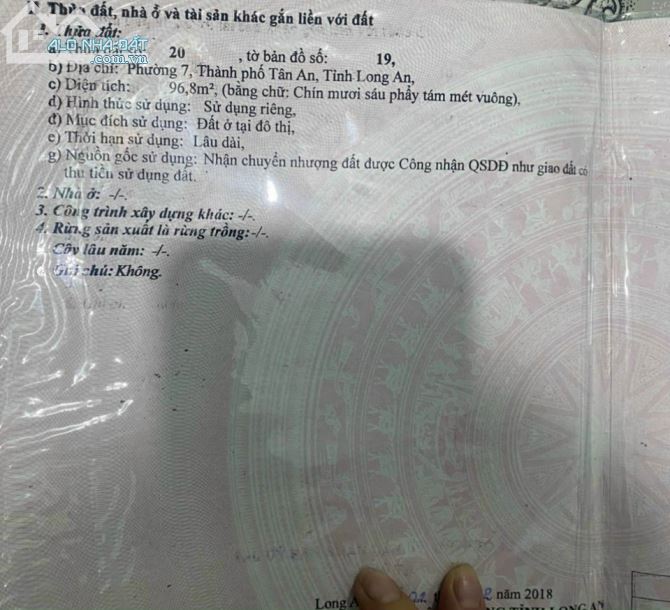 II. Thửa đất, nhà ở và tài sản khác gắn liền với đất
1. Thửa đất:
ALO NHÀ ĐẤT
.com.vn
20 , tờ bản đồ số: 19,
b) Địa chỉ: Phường 7, Thành phố Tân An, Tỉnh Long An,
c) Diện tích: 96,8m², (bằng chữ: Chín mươi sáu phẩy tám mét vuông),
d) Hình thức sử dụng: Sử dụng riêng,
đ) Mục đích sử dụng: Đất ở tại đô thị,
e) Thời hạn sử dụng: Lâu dài,
g) Nguồn gốc sử dụng: Nhận chuyển nhượng đất được Công nhận QSDĐ như giao đất có
thu tiền sử dụng đất.
2. Nhà ở: -/-.
3. Công trình xây dựng khác: -/-.
4. Rừng sản xuất là rừng trồng: -/-.
Cây lâu năm: -/-.
Ghi chú: Không.
năm 2018
Long
TỈNH LONG AN